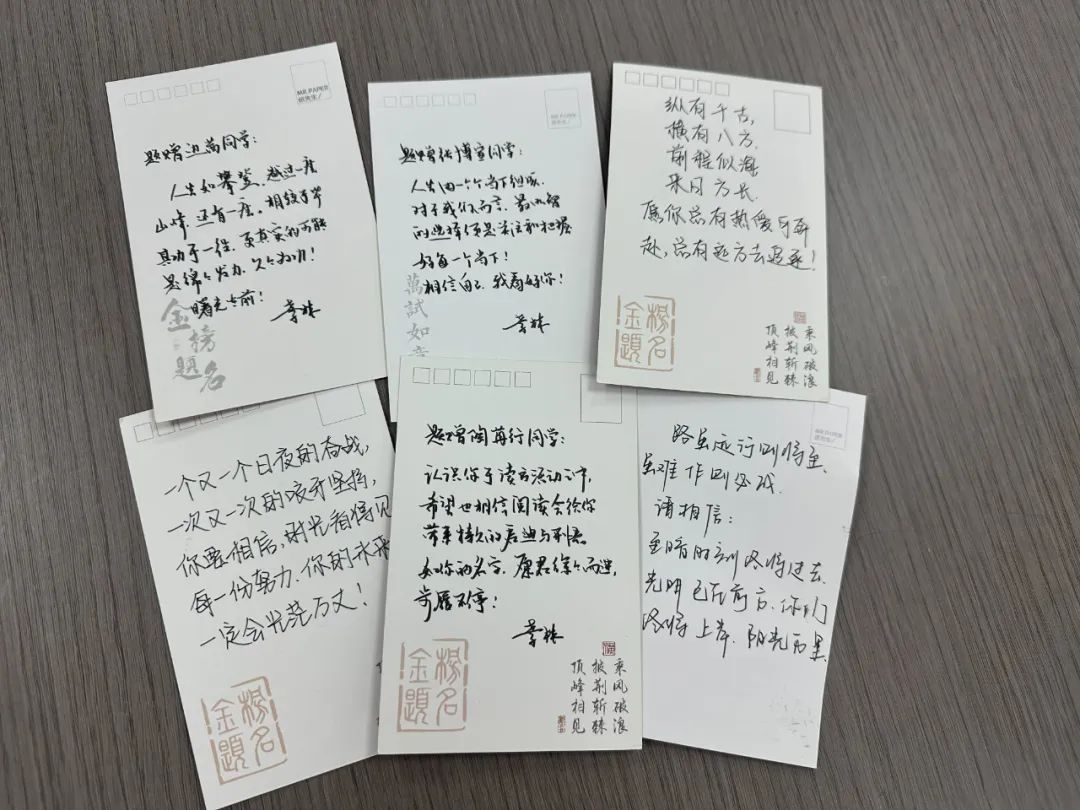 MR PAPER
题赠
同学:
人生如攀登,越过一座
山峰,还有一座。相较于毕
其功于一役,更真实的可能
是绵々发力、久久为功!
曙光在前!
李林
金榜题名
MR PAPER
题赠张博宣同学:
人生由一个个当下组成.
对于我们而言,最明智
的选择便是关注和把握
好每一个当下!
相信自己,我看好你!
李林
萬試如意
纵有千古,
横有八方.
前程似海
来日方长.
愿你总有热爱与奔
赴,总有远方去追逐!
金榜題名
乘风破浪
披荆斩棘
顶峰相见
一个又一个日夜的奋战,
一次又一次的咬牙坚持,
你要相信,时光看得见
每一份努力,你的未来
一定会光芒万丈!
金榜題名
题赠陶苒行同学:
认识你于读书活动之中,
希望也相信阅读会给你
带来持久的启迪与利息
如你的名字,愿君徐々而进,
步履不停!
李林
金榜題名
乘风破浪
披荆斩棘
顶峰相见
MR PAPER
路虽远行则将至.
虽难作则必成.
请相信:
至暗时刻终将过去.
光明已在前方.你们
终将上岸.阳光万里.